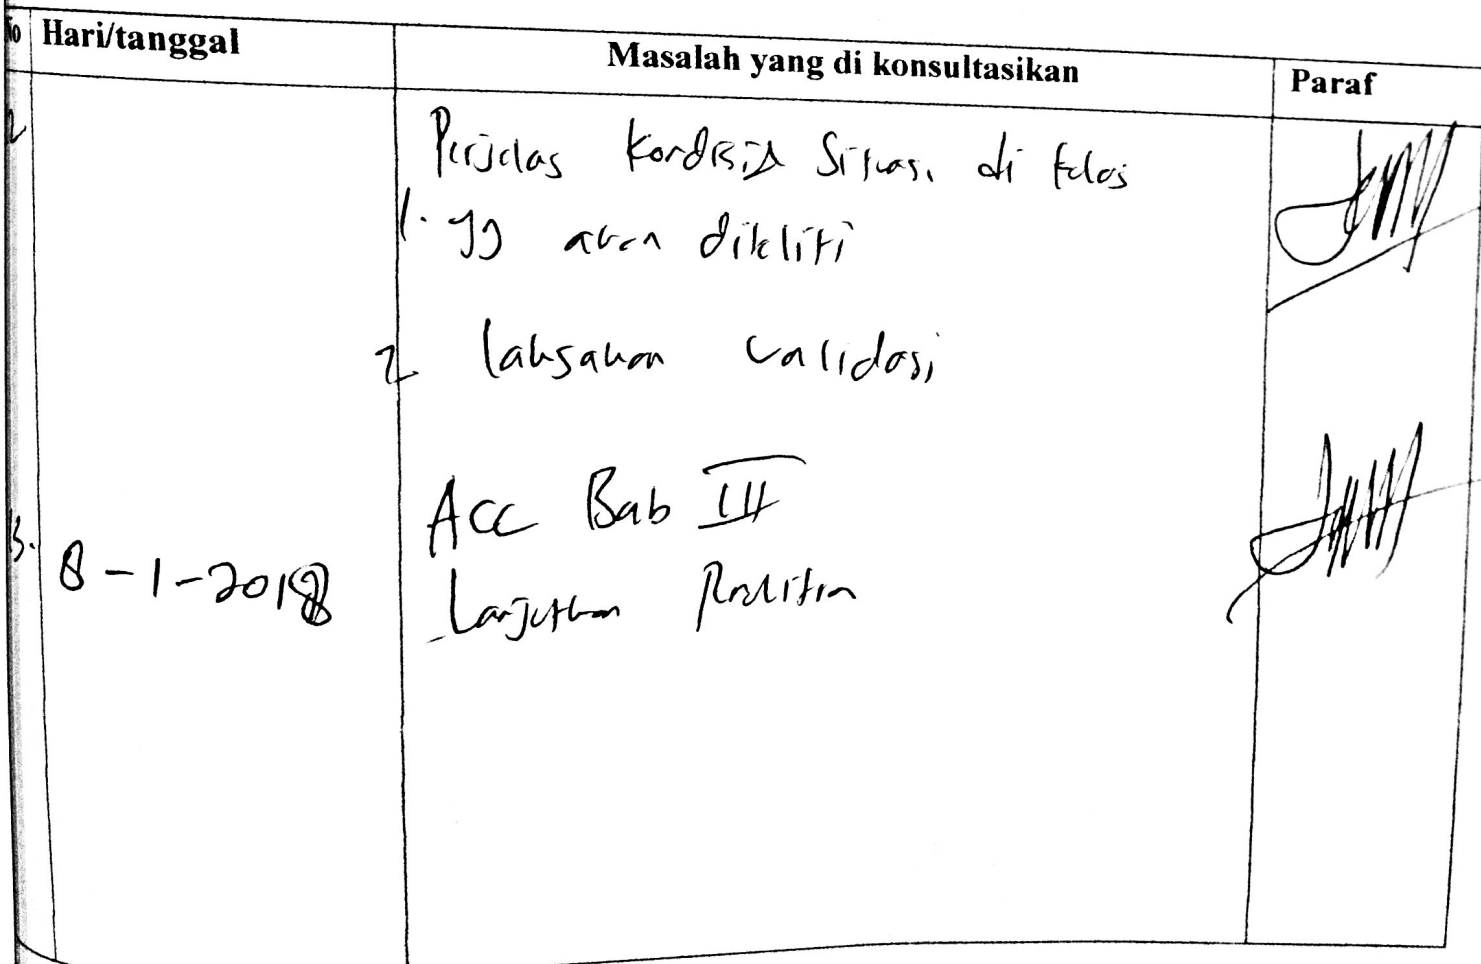 No Hari/tanggal Masalah yang di konsultasikan Paraf
2 Perjelas Kondisi Situasi di kelas
1. yg akan diteliti
2 laksakan validasi
Acc Bab III
3. 8-1-2018
Lanjutkan Penelitian